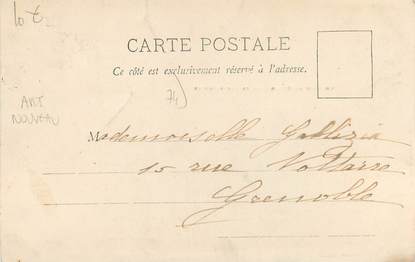 10 €
CARTE POSTALE
Ce côté est exclusivement réservé à l'adresse.
74
ART
NOUVEAU
Mademoiselle
15 rue Voltaire
Grenoble